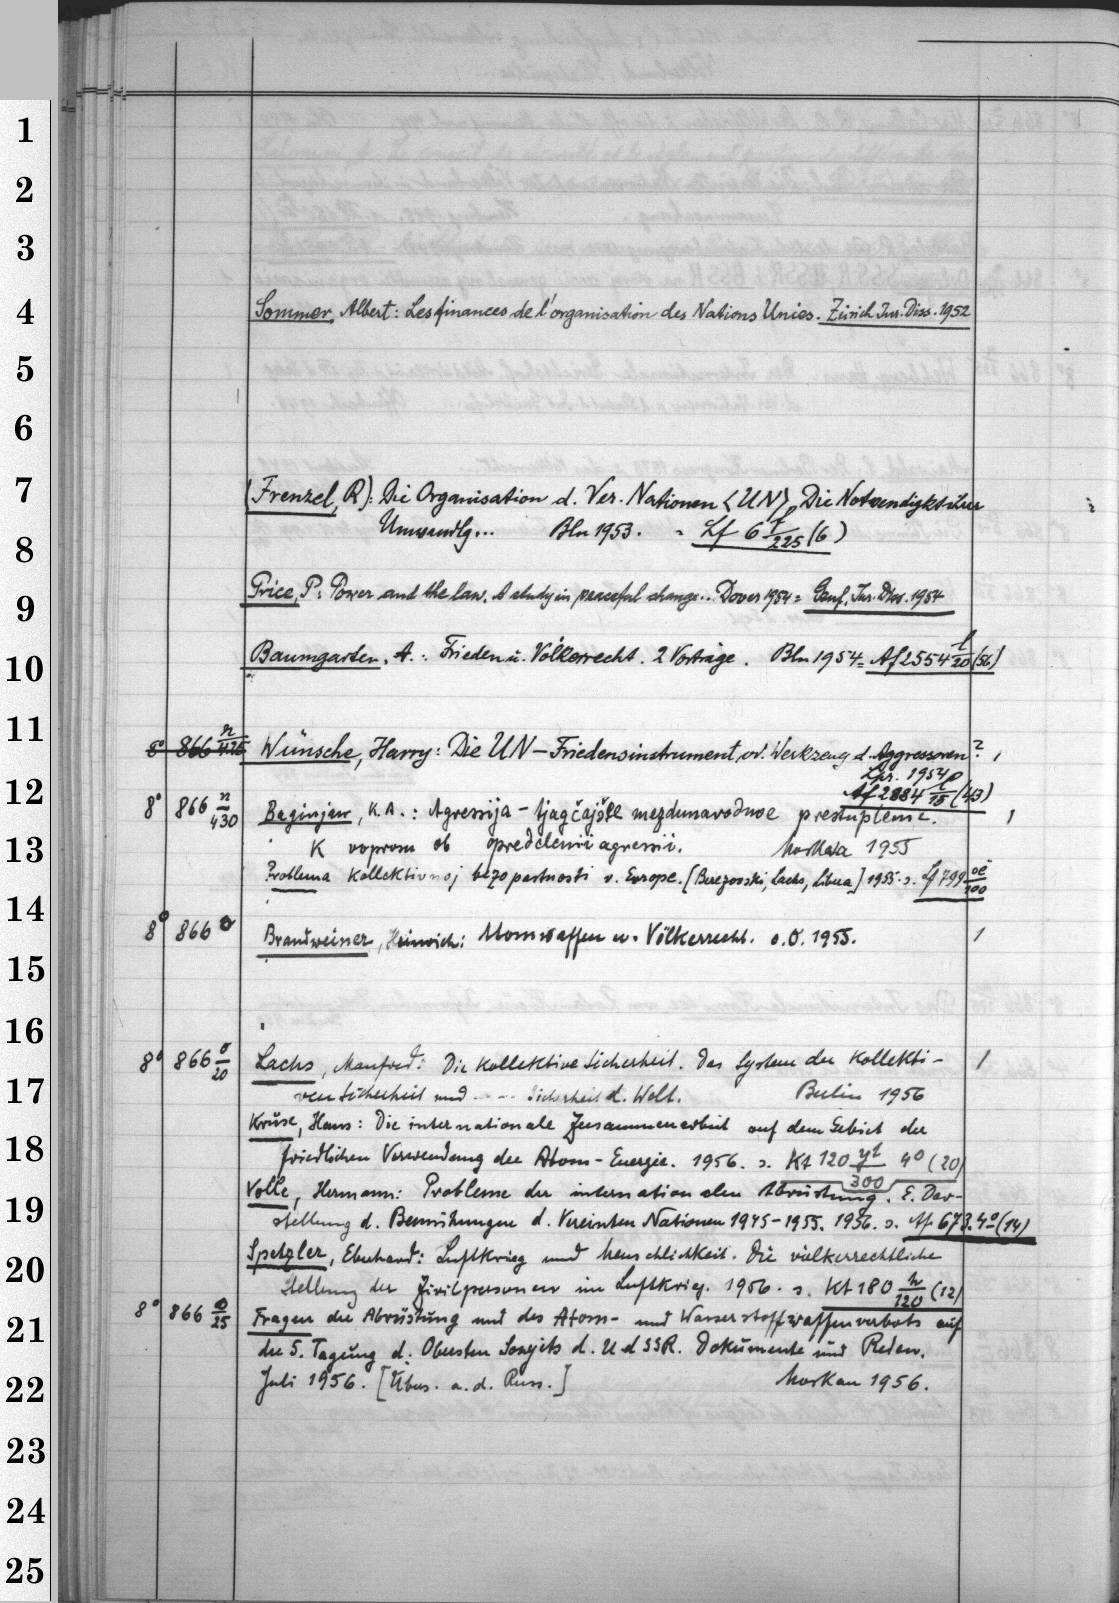 1
2
3
4 Sommer, Albert: Les finances de l'organisation des Nations Unies. Zürich Jur. Diss. 1952
5
6
7 (Frenzel, R): Die Organisation d. Ver. Nationen <UN>, Die Notwendigkt zur
8 Umwandlg... Bln 1953. = Lf 6 225 (6)
9 Price, P: Power and the law. A study in peaceful change.. Dover 1954 = Genf. Jur. Diss. 1954
10 Baumgarten, A.: Frieden u. Völkerrecht. 2 Vorträge. Bln 1954 = Af 2554 l/20 (56)
11 8° 866 n/425 Wünsche, Harry: Die UN – Friedensinstrument od. Werkzeug d. Aggressoren? 1
Lpz. 1954
12 Af 2884 /15 (43)
8° 866 n/430 Baginjan, K. A.: Agressija – tjagčajšee meždunarodnoe prestuplenie. 1
13 K voprosu ob opredelenii agressii. Moskva 1955
Problema kollektivnoj bezopasnosti v. Europe. [Berezovski, Lachs, Libera] 1955 s. Lf 799 oe/100
14 8° 866 o Brandweiner, Heinrich: Atomwaffen u. Völkerrecht. o.O. 1955. 1
15
16
8° 866 o/20 Lachs, Manfred: Die kollektive Sicherheit. Das System der kollekti- 1
17 ven Sicherheit und ---- Sicherheit d. Welt. Berlin 1956
Kruse, Hans: Die internationale Zusammenarbeit auf dem Gebiet der
18 friedlichen Verwendung der Atom-Energie. 1956. s. Kt 120 yt/300 4° (20)
Volle, Hermann: Probleme der internationalen Abrüstung. E. Dar-
19 stellung d. Bemühungen d. Vereinten Nationen 1945-1955. 1956. s. Af 673.4° (14)
Spetzler, Eberhard: Luftkrieg und Menschlichkeit. Die völkerrechtliche
20 Stellung der Zivilpersonen im Luftkrieg. 1956. s. Kt 180 h/120 (12)
8° 866 o/25 Fragen der Abrüstung und des Atom- und Wasserstoffwaffenverbots auf
21 der 5. Tagung d. Obersten Sowjets d. UdSSR. Dokumente und Reden.
22 Juli 1956. [Übers. a. d. Russ.] Moskau 1956.
23
24
25